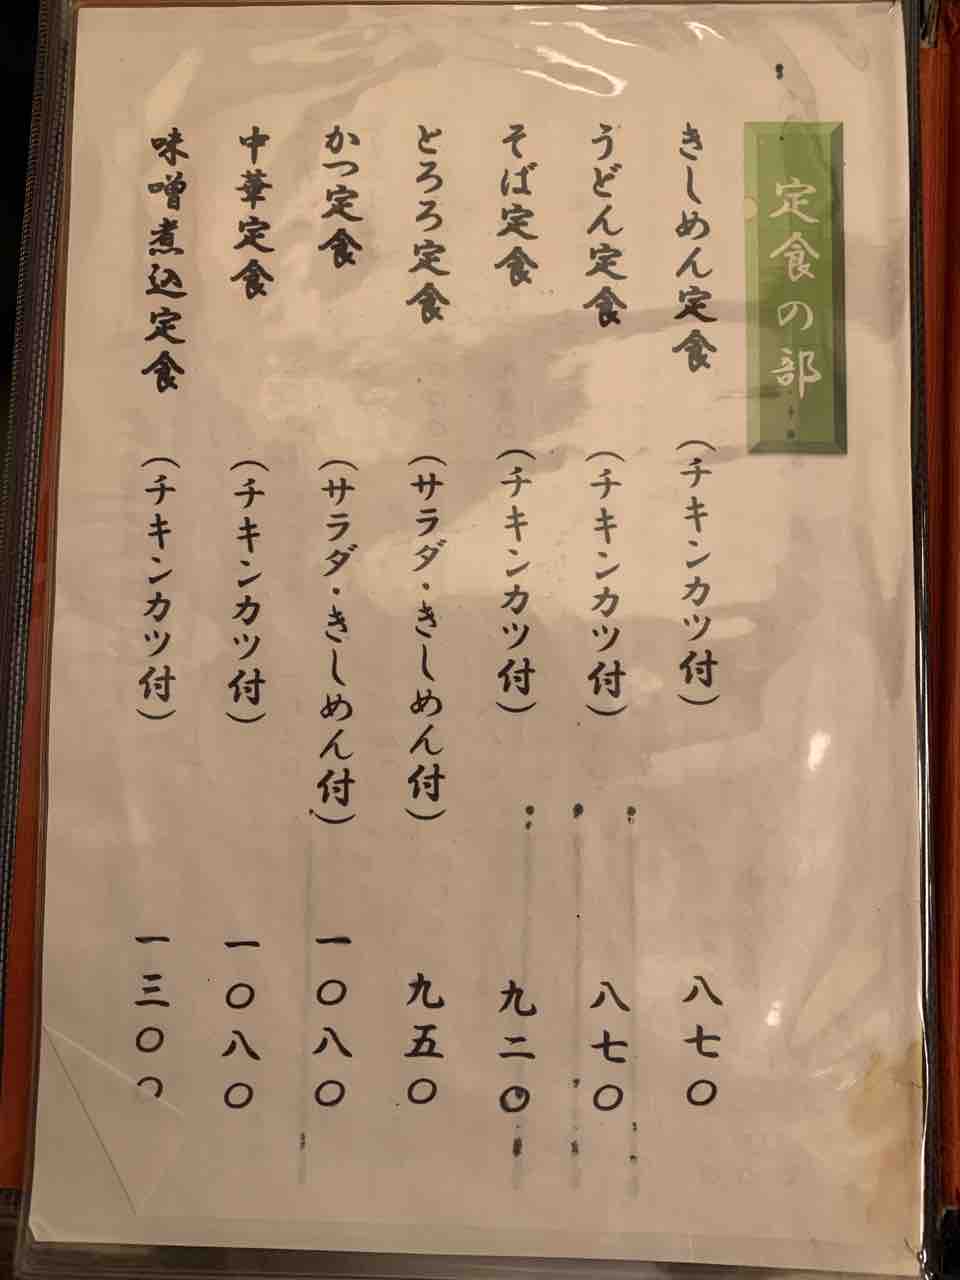 定食の部
きしめん定食 (チキンカツ付) 八七〇
うどん定食 (チキンカツ付) 八七〇
そば定食 (チキンカツ付) 九二〇
とろろ定食 (サラダ・きしめん付) 九五〇
かつ定食 (サラダ・きしめん付) 一〇八〇
中華定食 (チキンカツ付) 一〇八〇
味噌煮込定食 (チキンカツ付) 一三〇〇